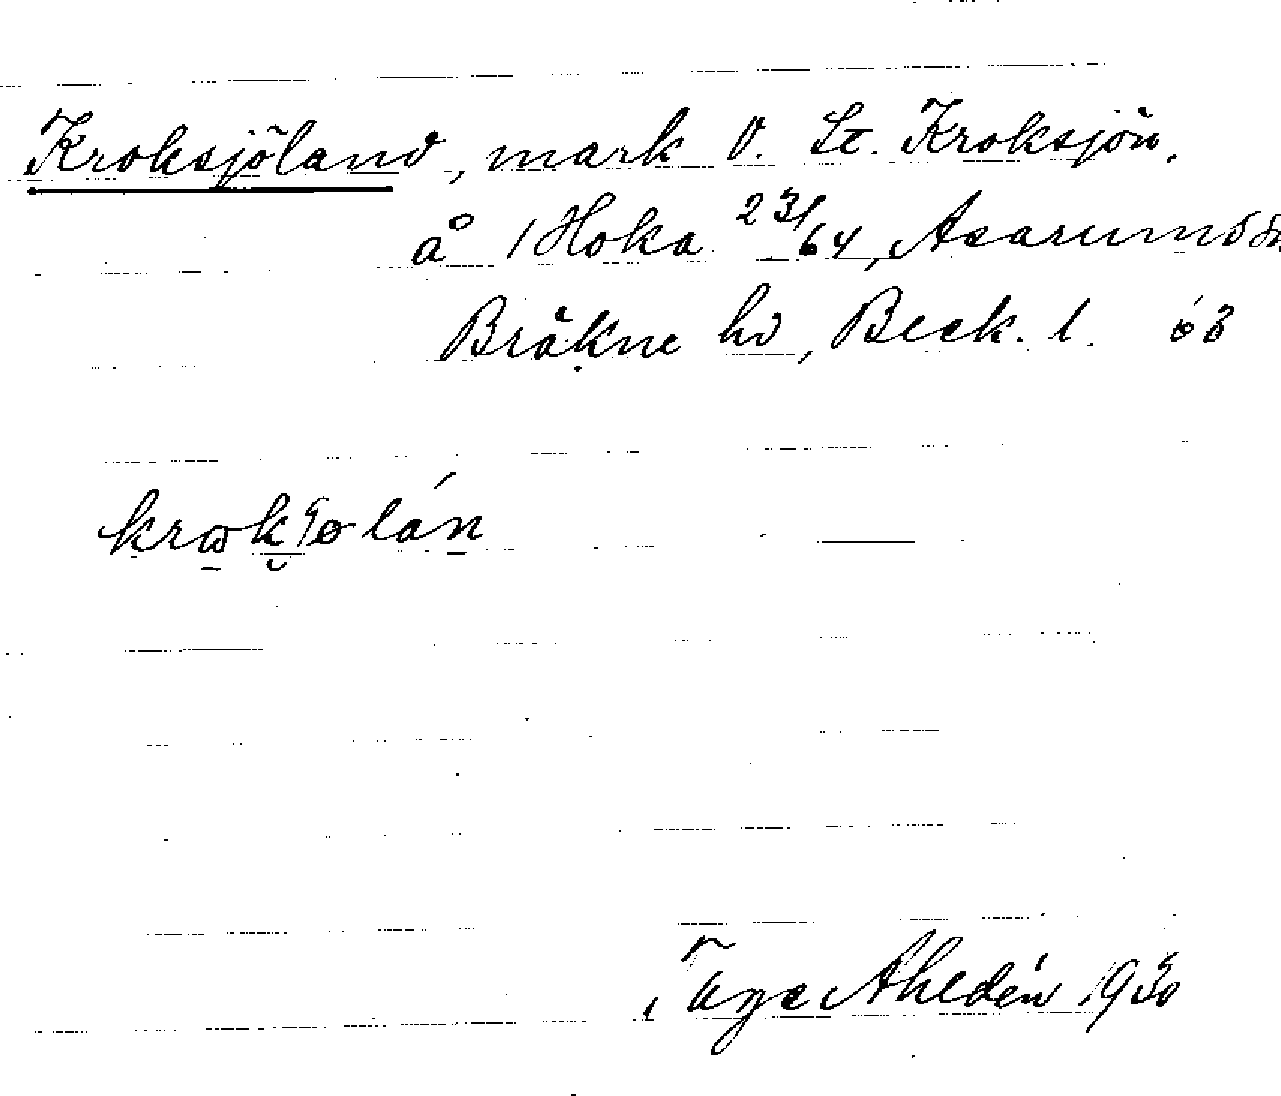 Kroksjöland, mark V. St. Kroksjön.
å 1 Hoka 23/64, Asarums sn
Bräkne hd, Bleck. l. 63
Tage Ahldén 1930